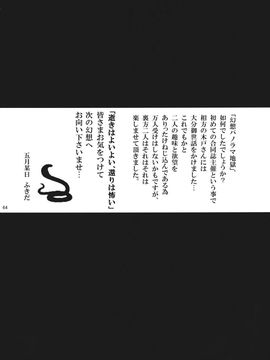 『幻想パノラマ地獄』、
如何でしたでしょうか？
初めての合同誌主催という事で
相方の木戸さんには
大分御世話をかけました…
これでもかと
二人の趣味と欲望を
ありったけねじ込んである為
万人受けはしないかもですが、
裏方二人はそれはそれは
楽しませて頂きました。
『逝きはよいよい、還りは怖い』
皆さまお気をつけて
次の幻想へ
お向い下さいませ…
五月某日　ふきだ
64